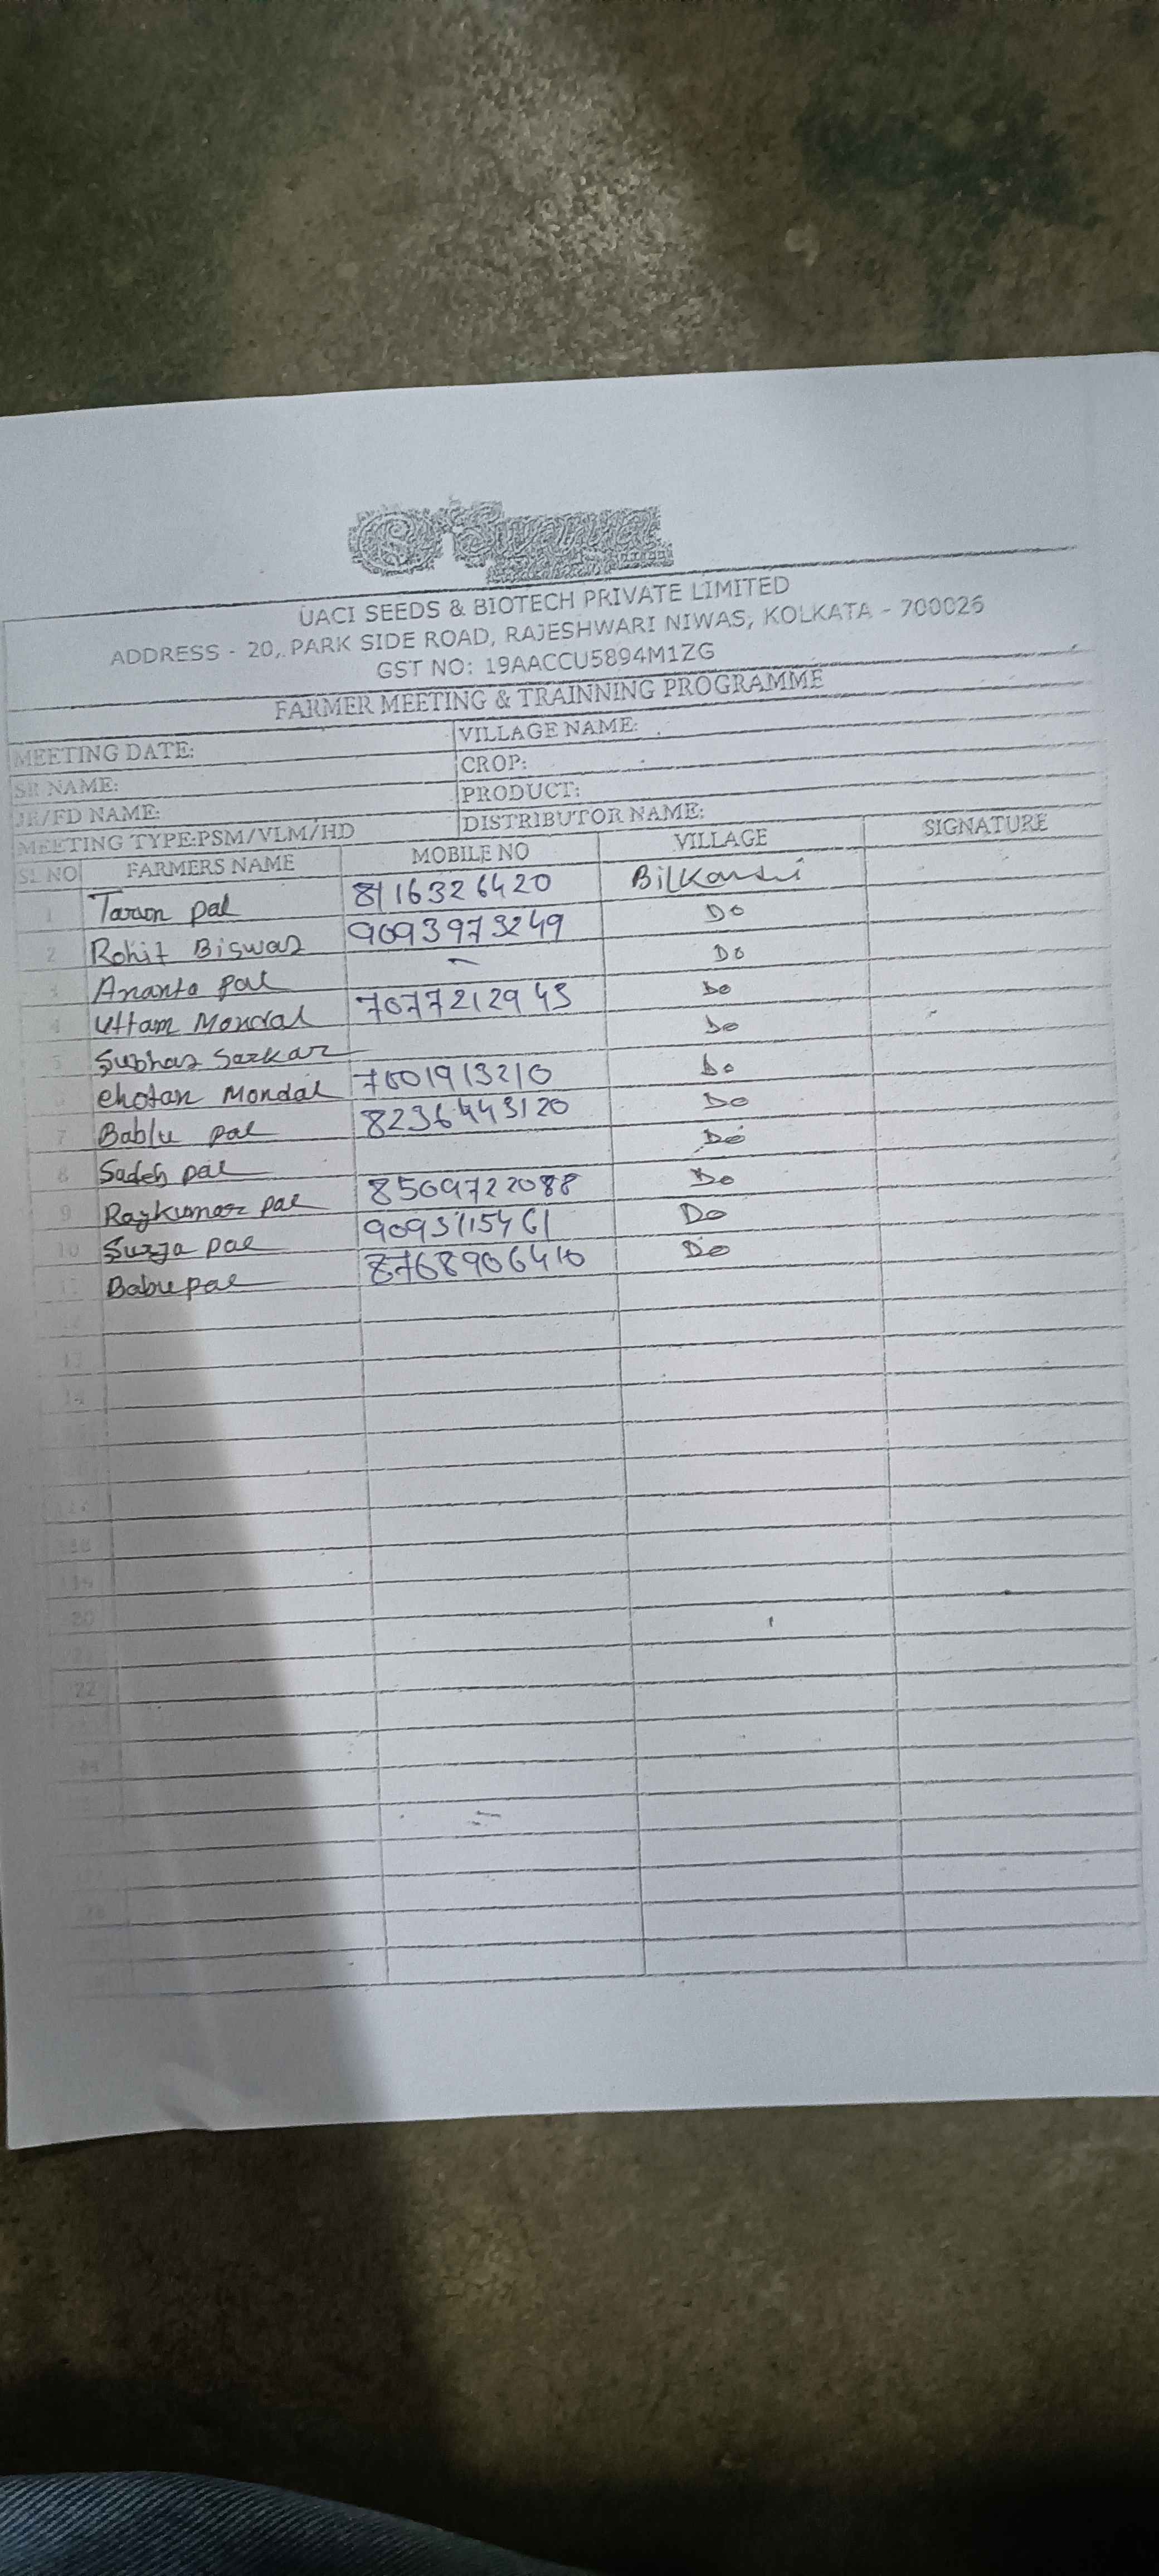 UACI SEEDS & BIOTECH PRIVATE LIMITED
ADDRESS - 20, PARK SIDE ROAD, RAJESHWARI NIWAS, KOLKATA - 700026
GST NO: 19AACCU5894M1ZG
FARMER MEETING & TRAINNING PROGRAMME
MEETING DATE: VILLAGE NAME:
SR NAME: CROP:
JR/FD NAME: PRODUCT:
MEETING TYPE:PSM/VLM/HD DISTRIBUTOR NAME:
SL NO FARMERS NAME MOBILE NO VILLAGE SIGNATURE
1 Taron pal 8116326420
2 Rohit Biswas 9093973249 Do
3 Ananta pal - Do
4 Uttam Mondal 7077212943 Do
5 Subhas Sarkar Do
6 chotan Mondal 7001913210 Do
7 Bablu pal 8236443120 Do
8 Sadeb pal Do
9 Rajkumar pal 8509722088 Do
10 Surja pal 9093115461 Do
11 Babu pal 8768906410 Do
12
13
14
18
19
20
22